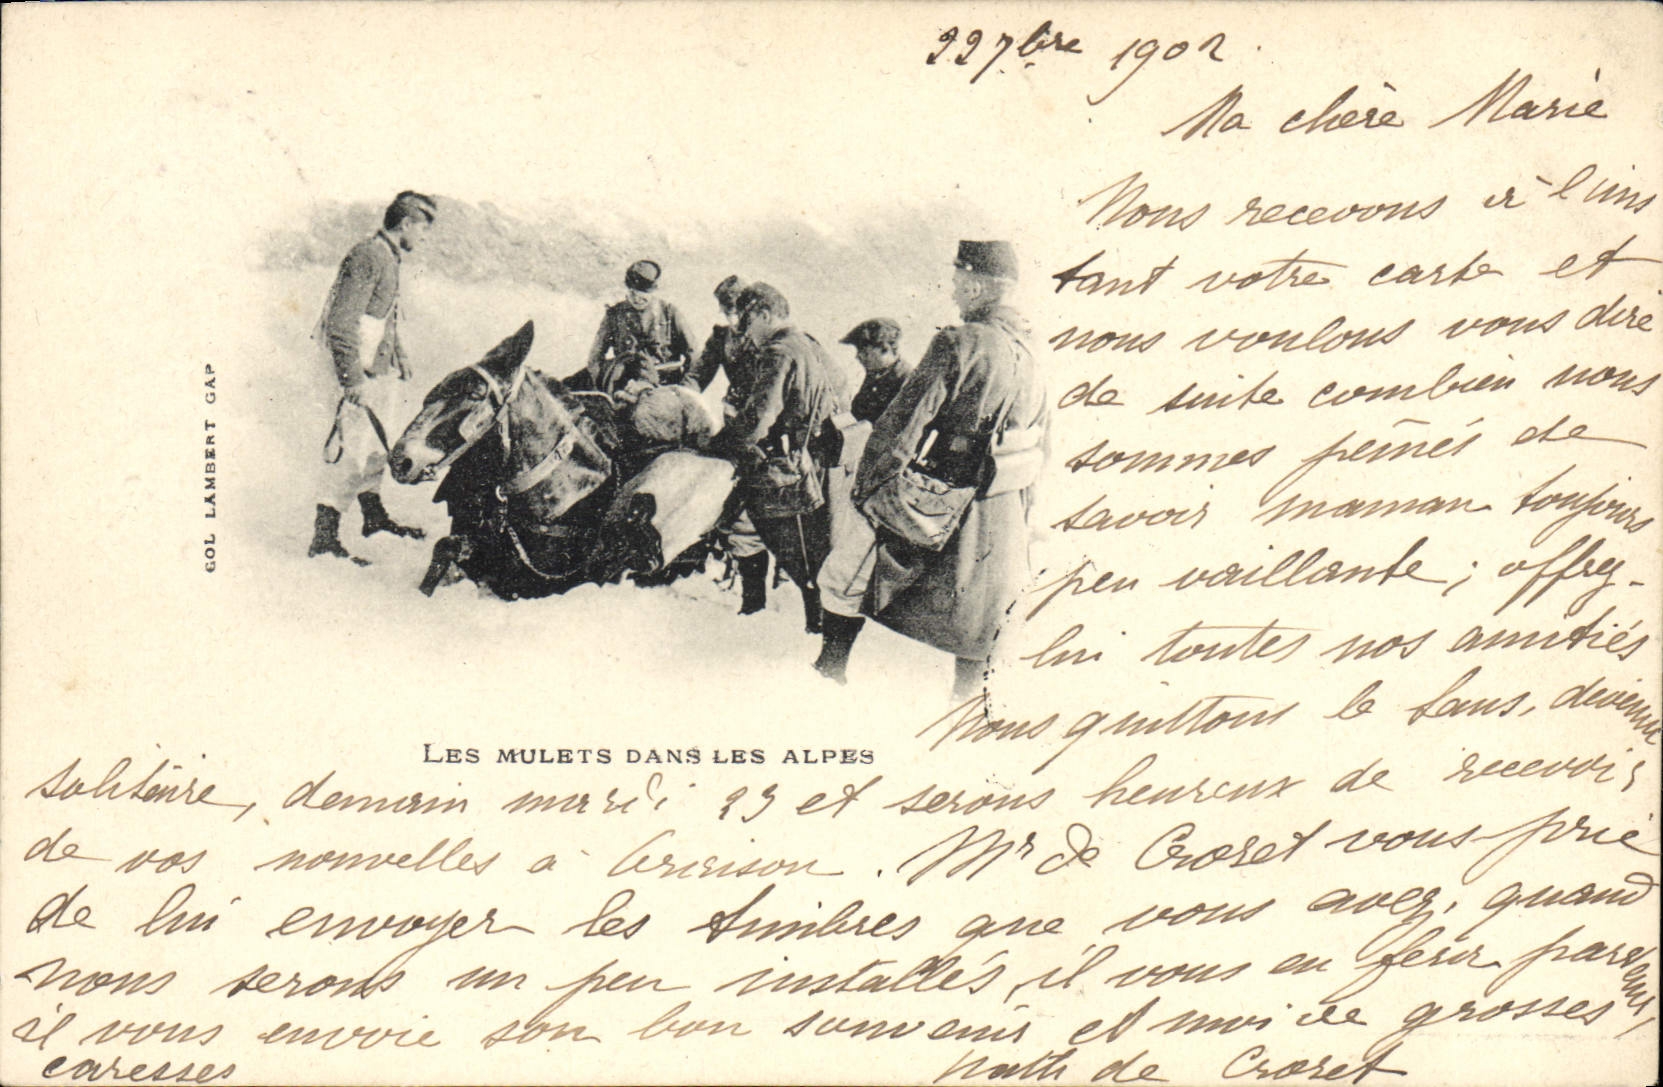 22 7bre 1902.
Ma chère Marie
Nous recevons à l'ins
tant votre carte et
nous voulons vous dire
de suite combien nous
sommes peinés de
savoir maman toujours
peu vaillante ; offrez-
lui toutes nos amitiés
Nous quittons le Saus, devenu
GOL LAMBERT GAP
LES MULETS DANS LES ALPES
solitaire, demain mardi 23 et serons heureux de recevoir
de vos nouvelles à . Mr de Croret vous prie
de lui envoyer les timbres que vous avez, quand
nous serons un peu installés, il vous en fera parvenir,
il vous envoie son bon souvenir et moi de grosses
caresses
Nath de Croret